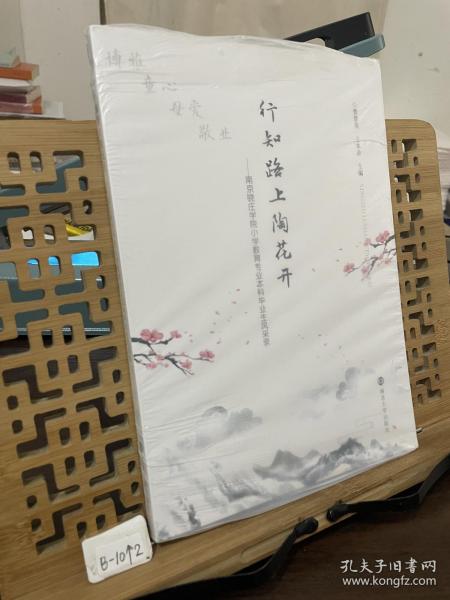 博雅
童心
母爱
敬业
行知路上陶花开
——南京晓庄学院小学教育专业本科毕业生风采录
主编
南京大学出版社
B-10个2
孔夫子旧书网
www.kongfz.com